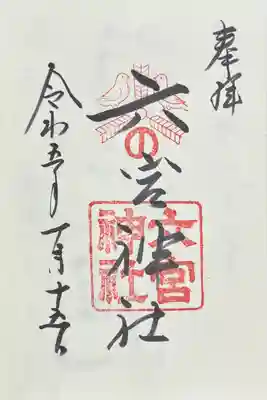 奉拝
六の宮神社
六宮神社
令和五年一月十五日